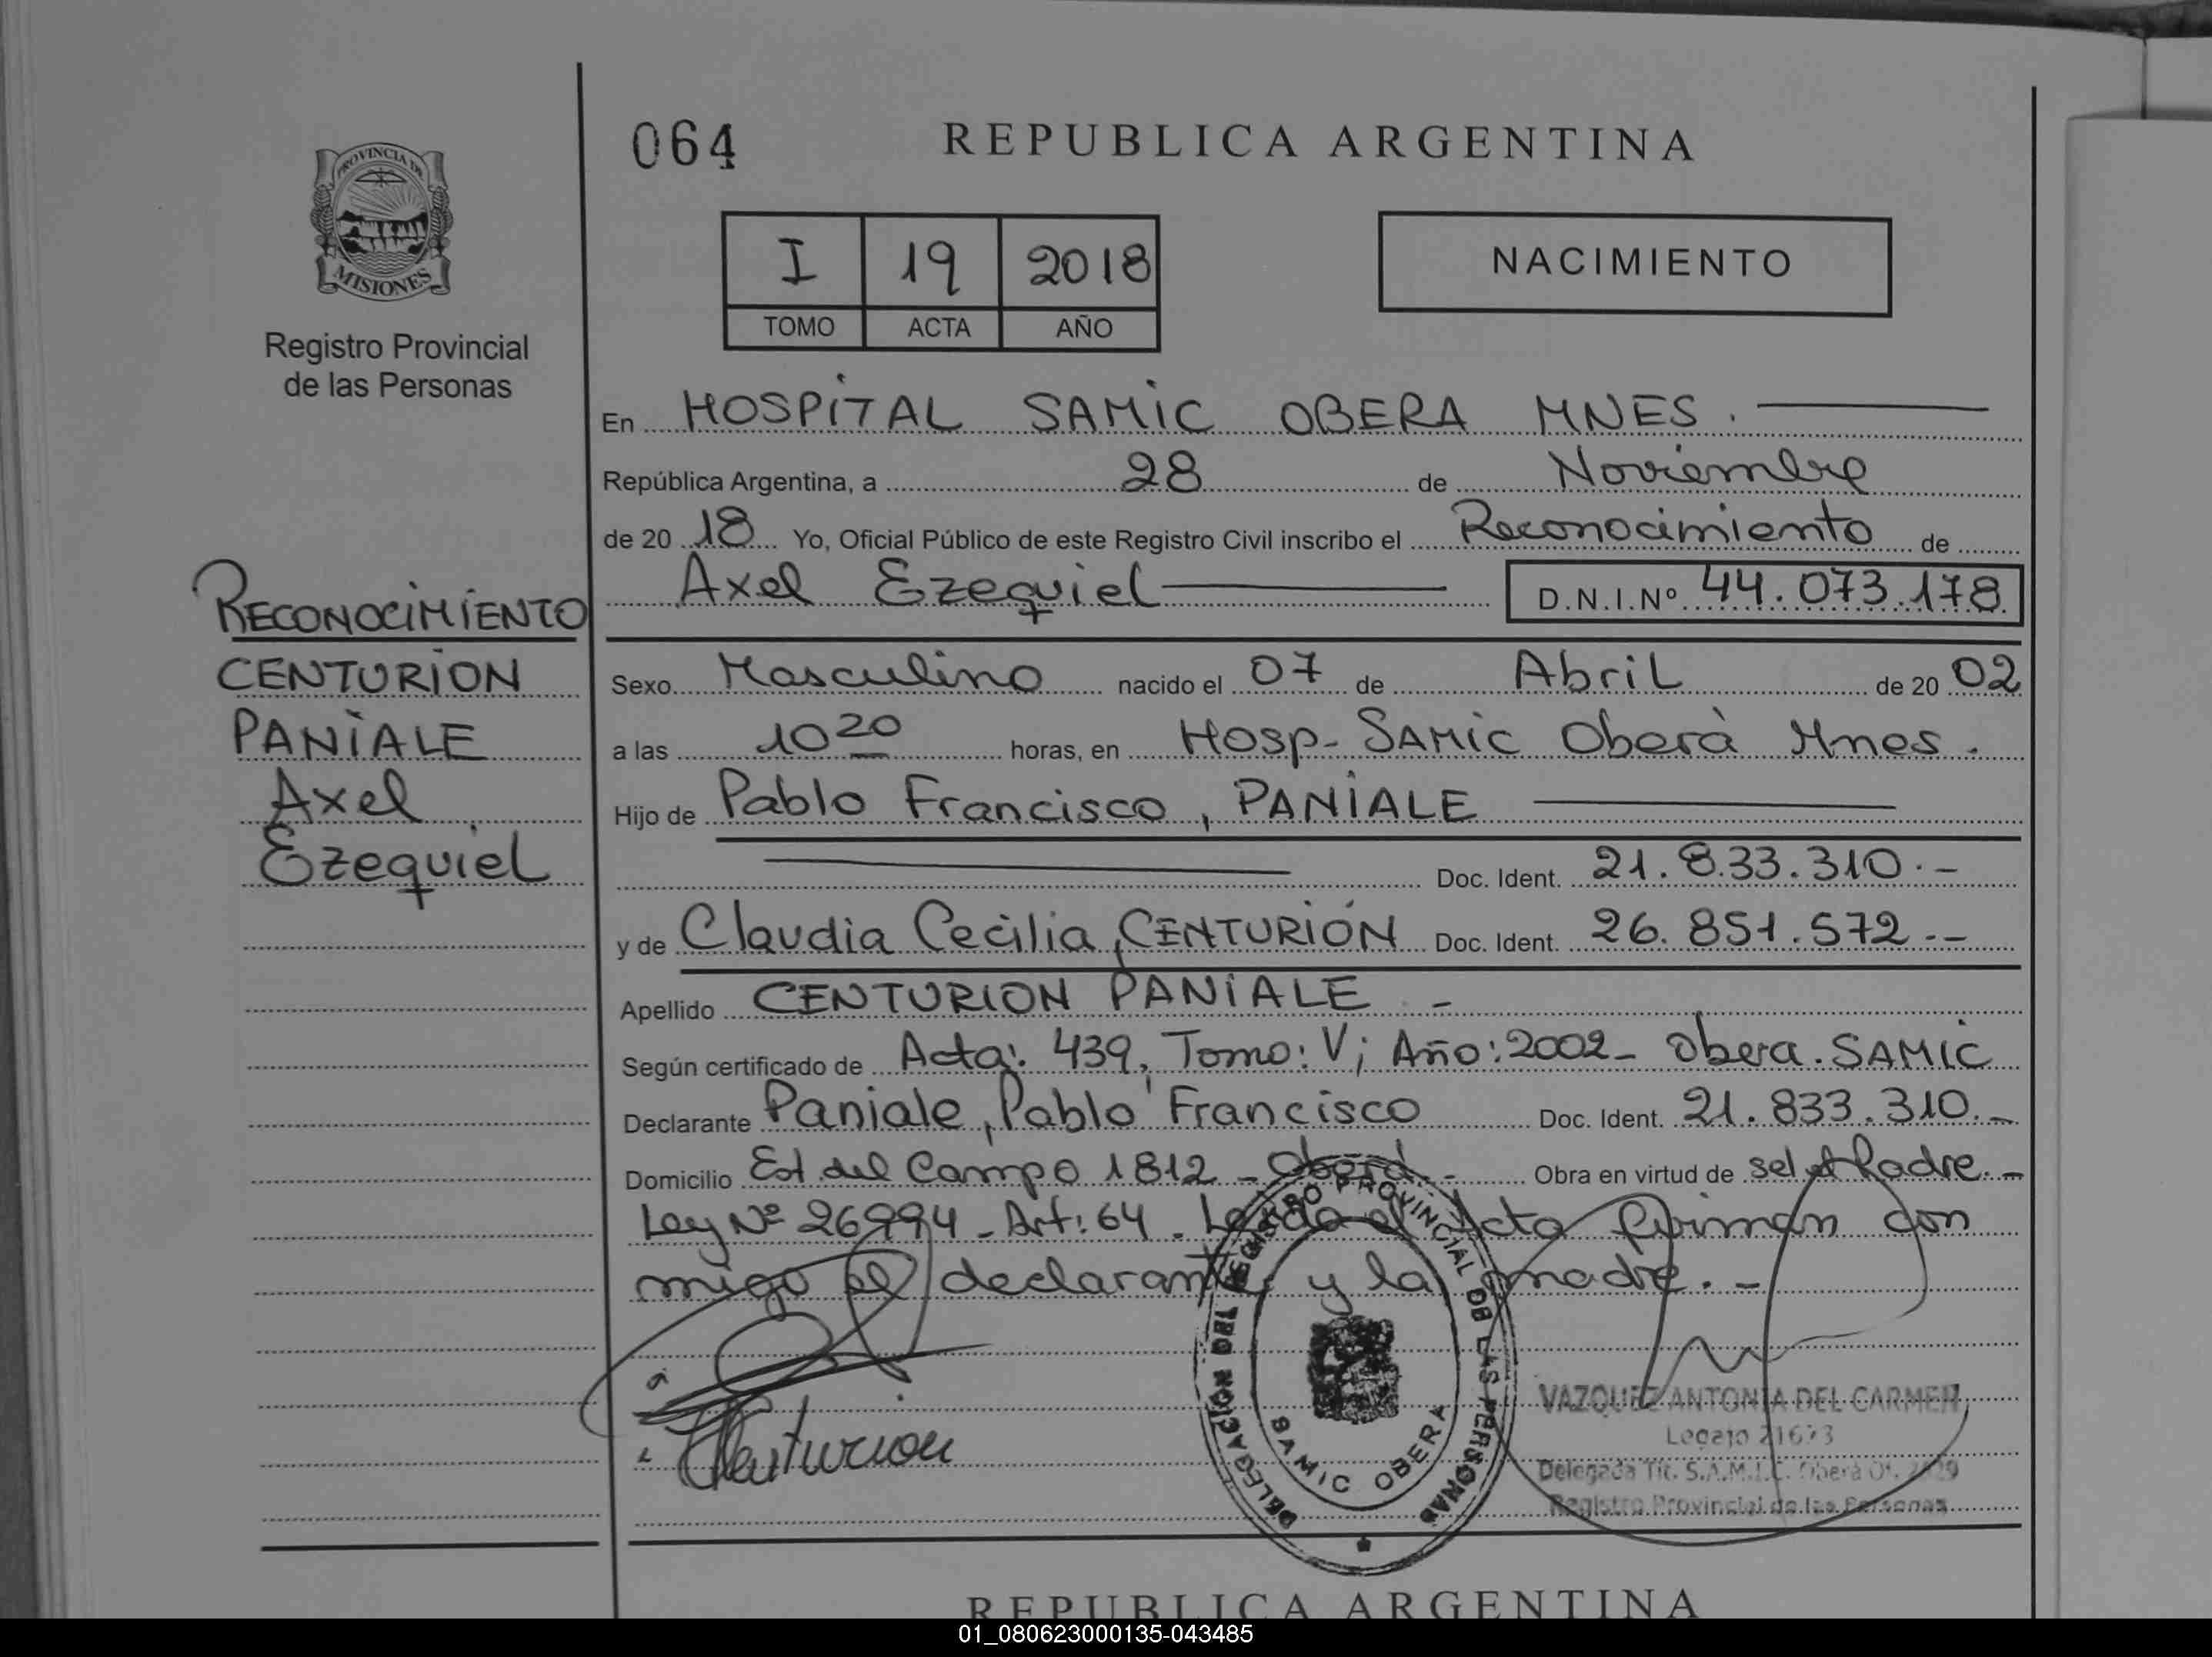 064
REPUBLICA ARGENTINA
PROVINCIA DE
MISIONES
Registro Provincial
de las Personas
I 19 2018
TOMO ACTA AÑO
NACIMIENTO
En HOSPITAL SAMIC OBERA MNES.
República Argentina, a 28 de Noviembre
de 20 18 Yo, Oficial Público de este Registro Civil inscribo el Reconocimiento de
Axel Ezequiel D.N.I.Nº 44.073.178
RECONOCIMIENTO
CENTURION
PANIALE
Axel
Ezequiel
Sexo Masculino nacido el 07 de Abril de 20 02
a las 10 20 horas, en Hosp- SAMIC Oberà Mnes.
Hijo de Pablo Francisco, PANIALE
Doc. Ident. 21.833.310.-
y de Claudia Cecilia, CENTURIÓN Doc. Ident. 26.851.572.--
Apellido CENTURION PANIALE -
Según certificado de Acta: 439, Tomo: V; Año: 2002- Obera. SAMIC
Declarante Paniale, Pablo Francisco Doc. Ident. 21.833.310.-
Domicilio Est. del Campo 1812 - Oberá.- Obra en virtud de sel el Padre.-
Ley Nº 26994 - Art: 64. Leida el Acta firman con
migo el declarante y la madre.-
Centurion
REGISTRO PROVINCIAL DE LAS PERSONAS
DELEGACION DEL
SAMIC OBERA
VAZQUEZ ANTONIA DEL CARMEN
Legajo
Delegada Tit. S.A.M.I.C. Oberá Of.
Registro Provincial de las Personas
REPUBLICA ARGENTINA
01_080623000135-043485